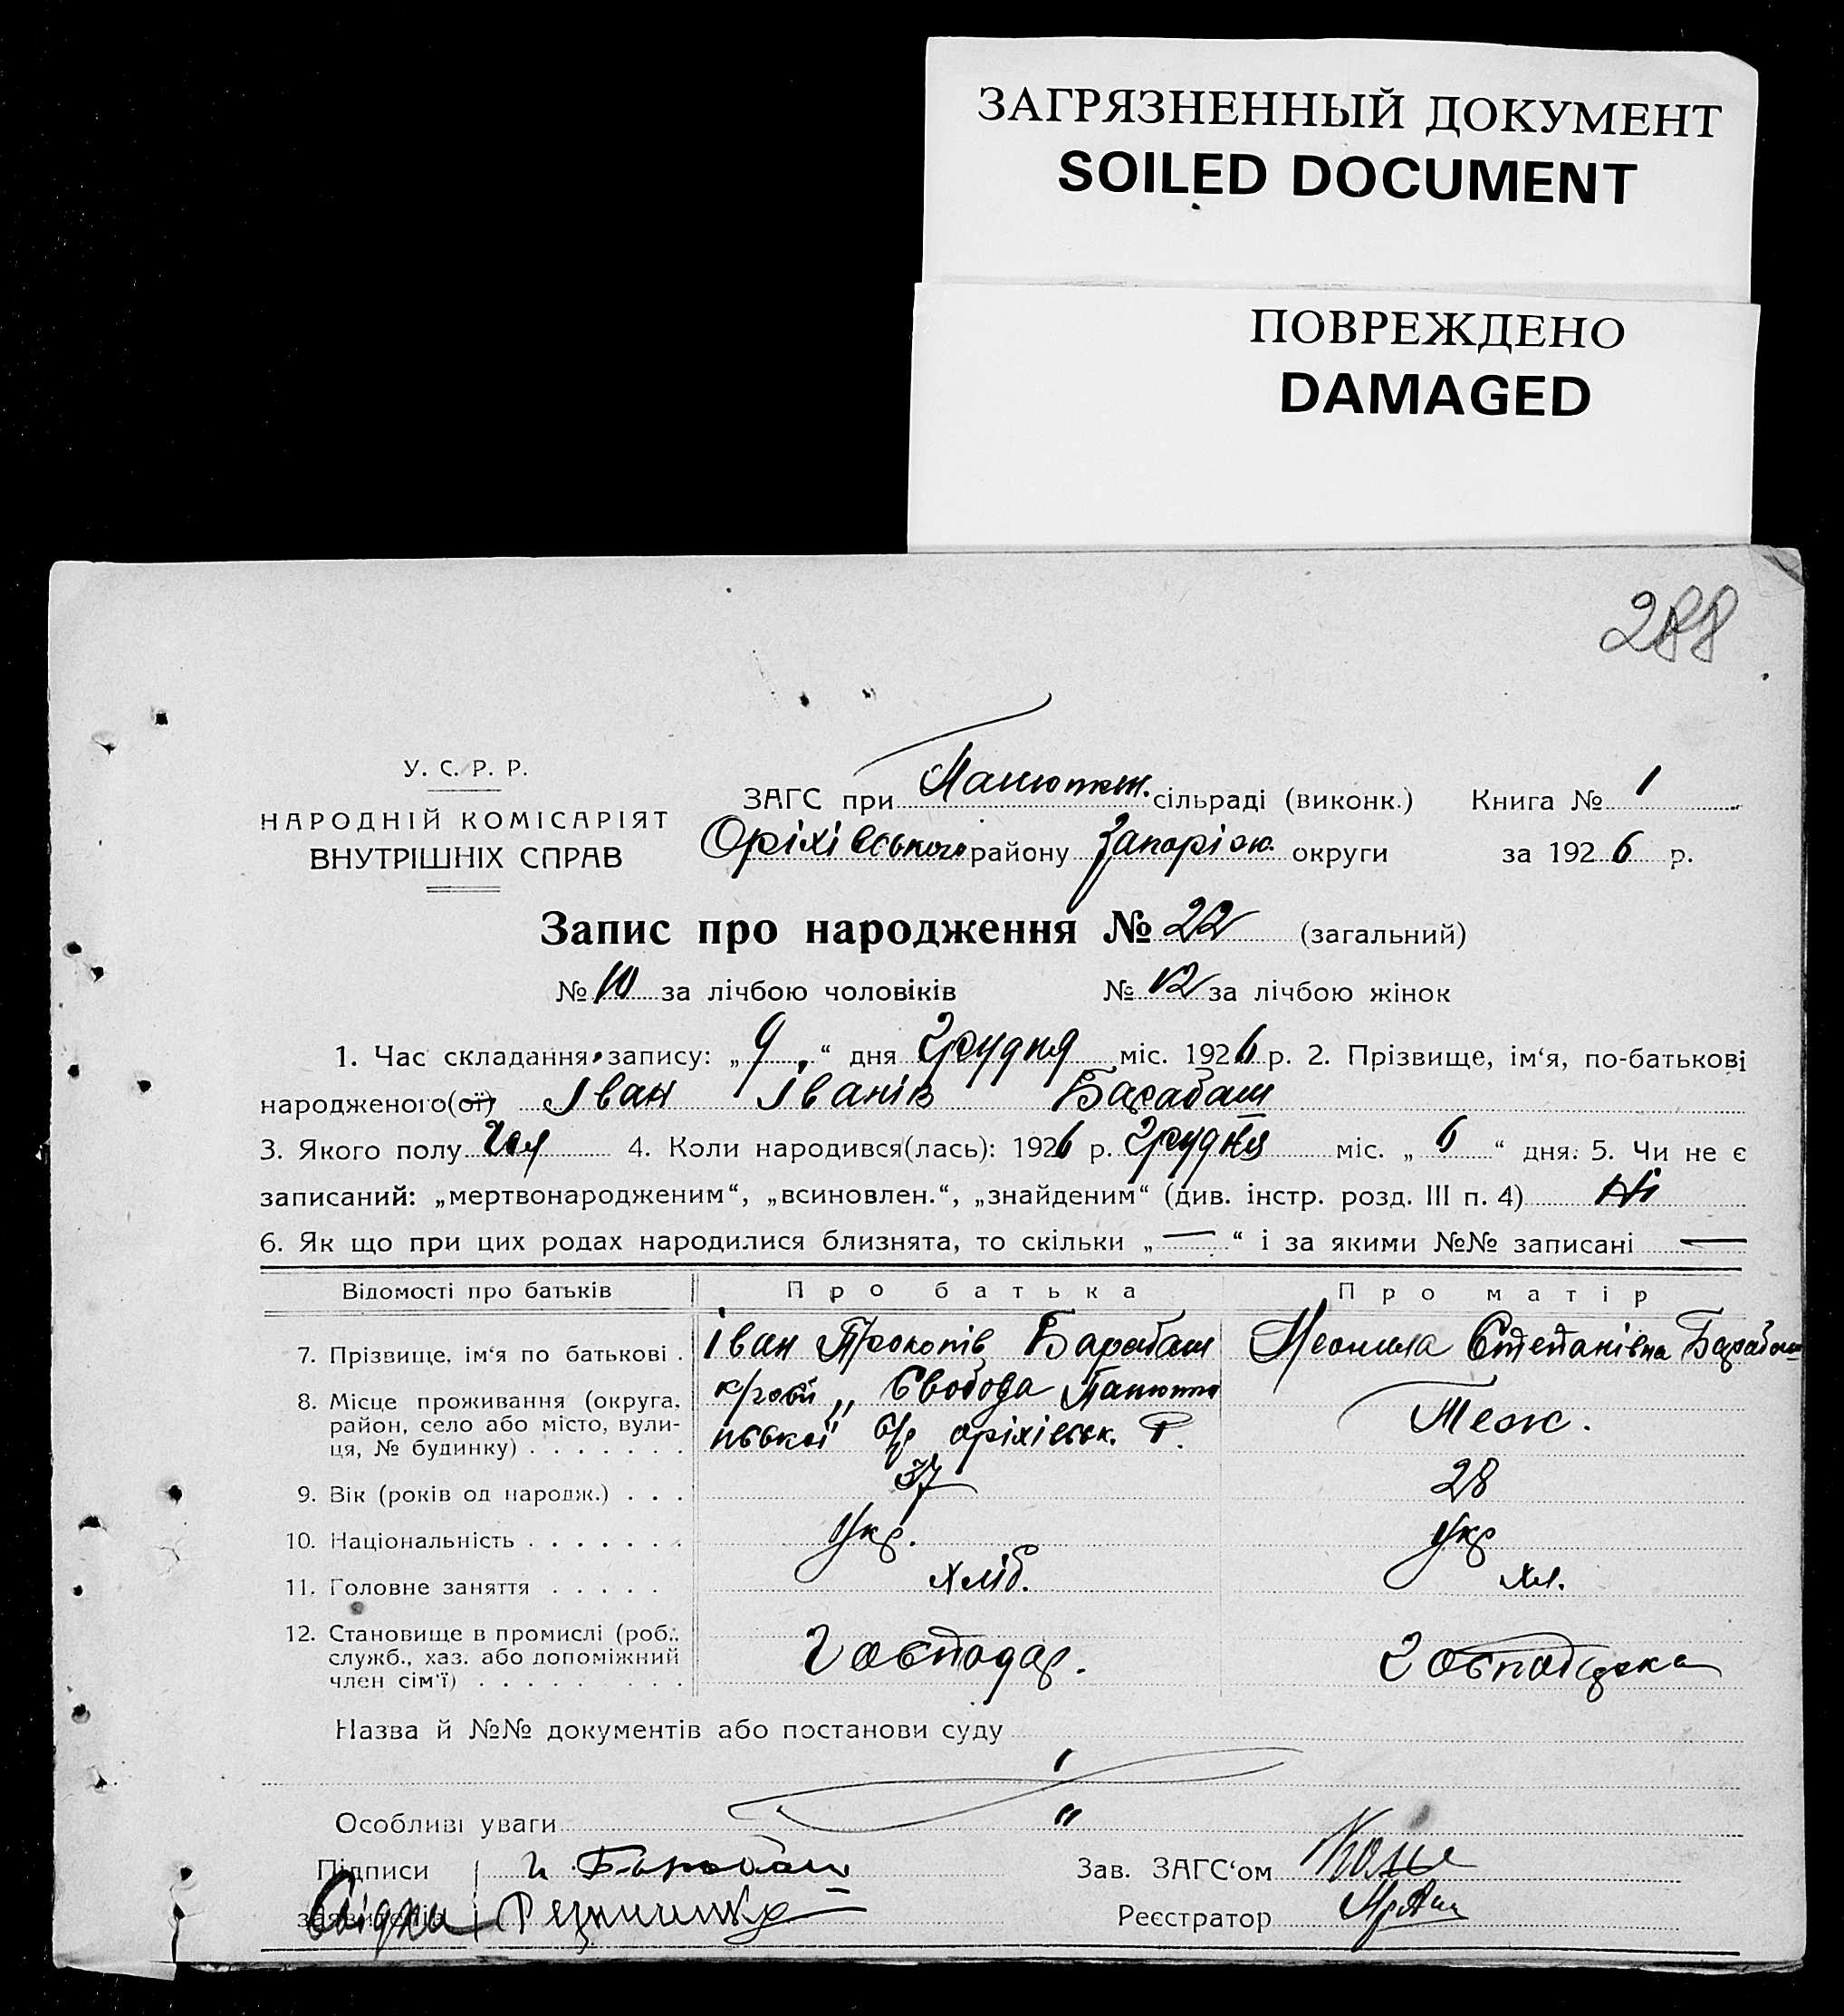 ЗАГРЯЗНЕННЫЙ ДОКУМЕНТ
SOILED DOCUMENT
ПОВРЕЖДЕНО
DAMAGED
288
У. С. Р. Р.
НАРОДНІЙ КОМІСАРІЯТ
ВНУТРІШНІХ СПРАВ
ЗАГС при Панютин. сільраді (виконк.) Книга № 1
Оріхівського району Запоріж. округи за 1926 р.
Запис про народження № 22 (загальний)
№ 10 за лічбою чоловіків № 12 за лічбою жінок
1. Час складання запису: „9“ дня Грудня міс. 1926 р. 2. Прізвище, ім‘я, по-батькові
народженого(ої) Іван Іванів Барабаш
3. Якого полу Чол 4. Коли народився(лась): 1926 р. Грудня міс. „6“ дня. 5. Чи не є
записаний: „мертвонародженим“, „всиновлен.“, „знайденим“ (див. інстр. розд. III п. 4) Ні
6. Як що при цих родах народилися близнята, то скільки „—“ і за якими №№ записані —
Відомості про батьків Про батька Про матір
7. Прізвище, ім‘я по батькові . Іван Прокопів Барабаш Неонила Степанівна Барабаш
8. Місце проживання (округа, район, село або місто, вулиця, № будинку) Свобода оріхівськ. Р. Теж.
9. Вік (років од народж.) . . . 37 28
10. Національність . . . . . . . Укр. Укр
11. Головне заняття . . . . . Хліб. Хл.
12. Становище в промислі (роб., служб., хаз. або допоміжний член сім‘ї) Господар. Господарка
Назва й №№ документів або постанови суду
Особливі уваги "
Підписи И Барабаш Зав. ЗАГС‘ом
заявителів Свідки Резниченко Реєстратор